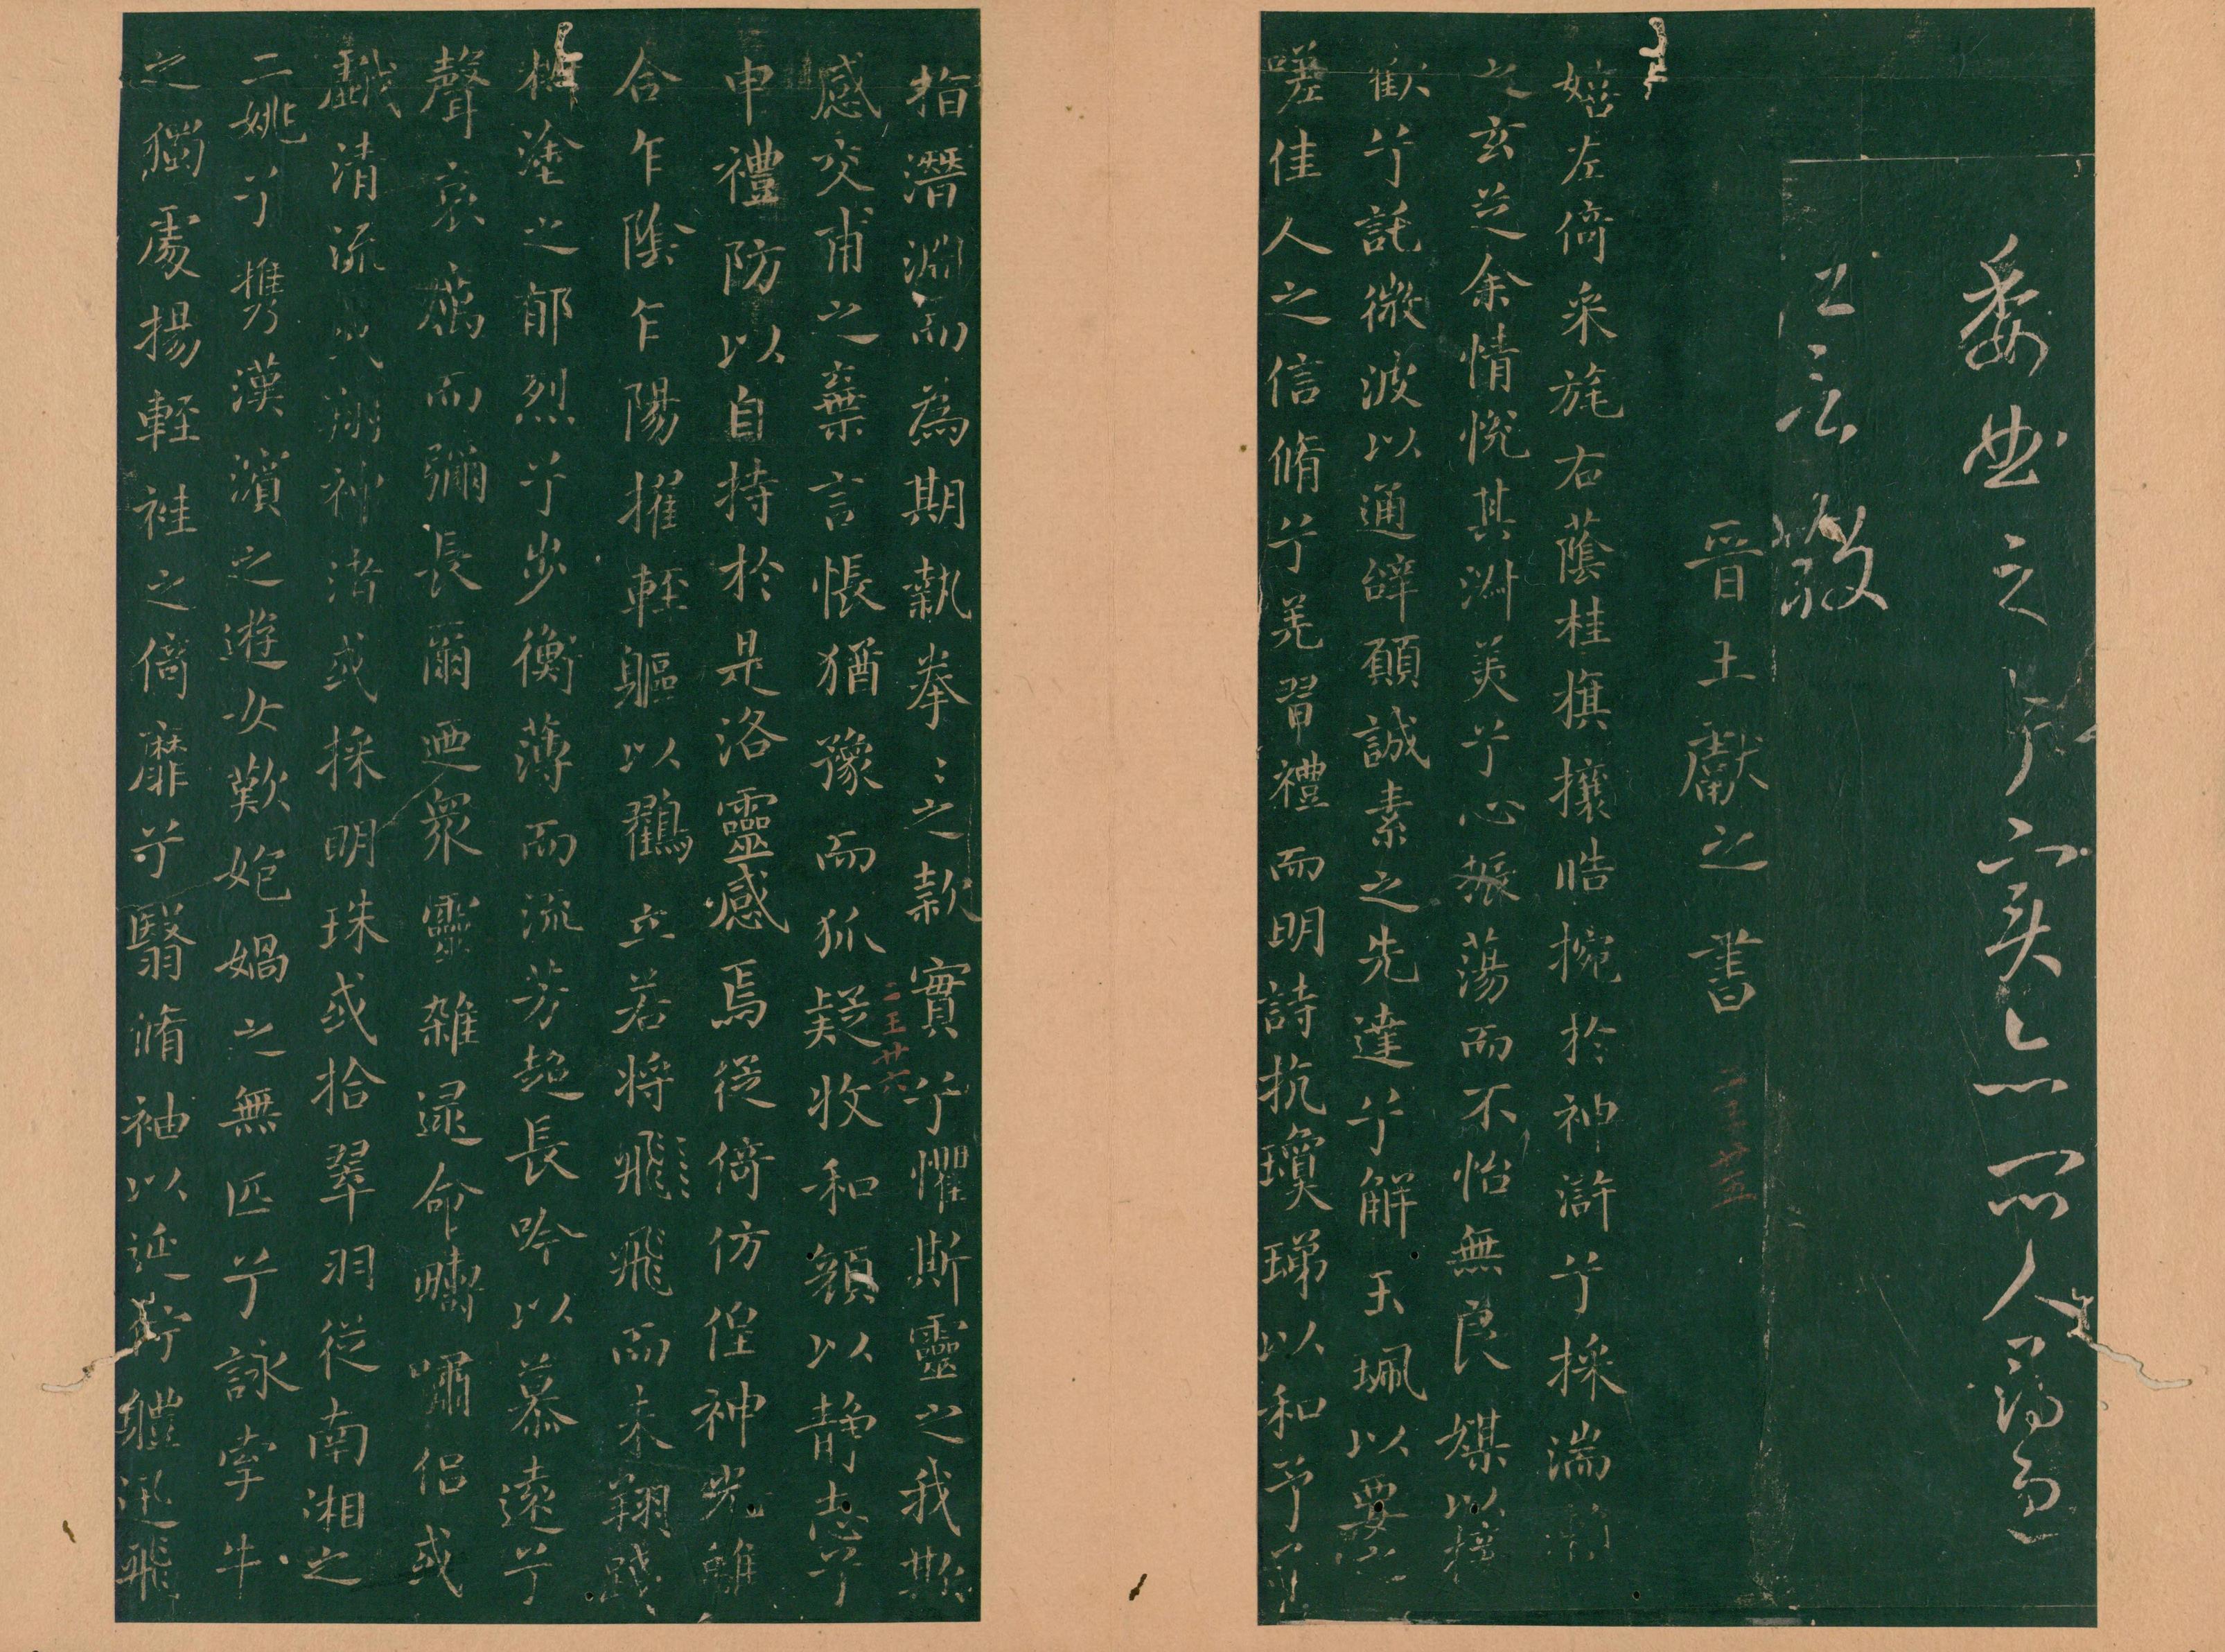 委曲之
王献
晉王獻之書
二王廿五
嬉左倚采旄右蔭桂旗攘皓捥於神滸兮採湍瀨
之玄芝余情悅其淋美兮心振蕩而不怡無良媒以接
歡兮託微波以通辝願誠素之先達兮解玉珮以要
嗟佳人之信脩兮羌習禮而明詩抗瓊珶以和予兮
指潛淵而為期執拳〻之款實兮懼斯靈之我欺
二王廿六
感交甫之棄言悵猶豫而狐疑收和顏以靜志兮
申禮防以自持於是洛靈感焉徙倚仿偟神光離
合乍陰乍陽擢輕軀以鶴立若將飛飛而未翔踐
椒塗之郁烈兮步衡薄而流芳超長吟以慕遠兮
聲哀厲而彌長爾迺眾靈雜遝命疇嘯侶或
戲清流或翔神渚或採明珠或拾翠羽從南湘之
二姚兮攜漢濱之遊女歎匏媧之無匹兮詠牽牛
之獨處揚輕袿之倚靡兮翳脩袖以延佇體迅飛